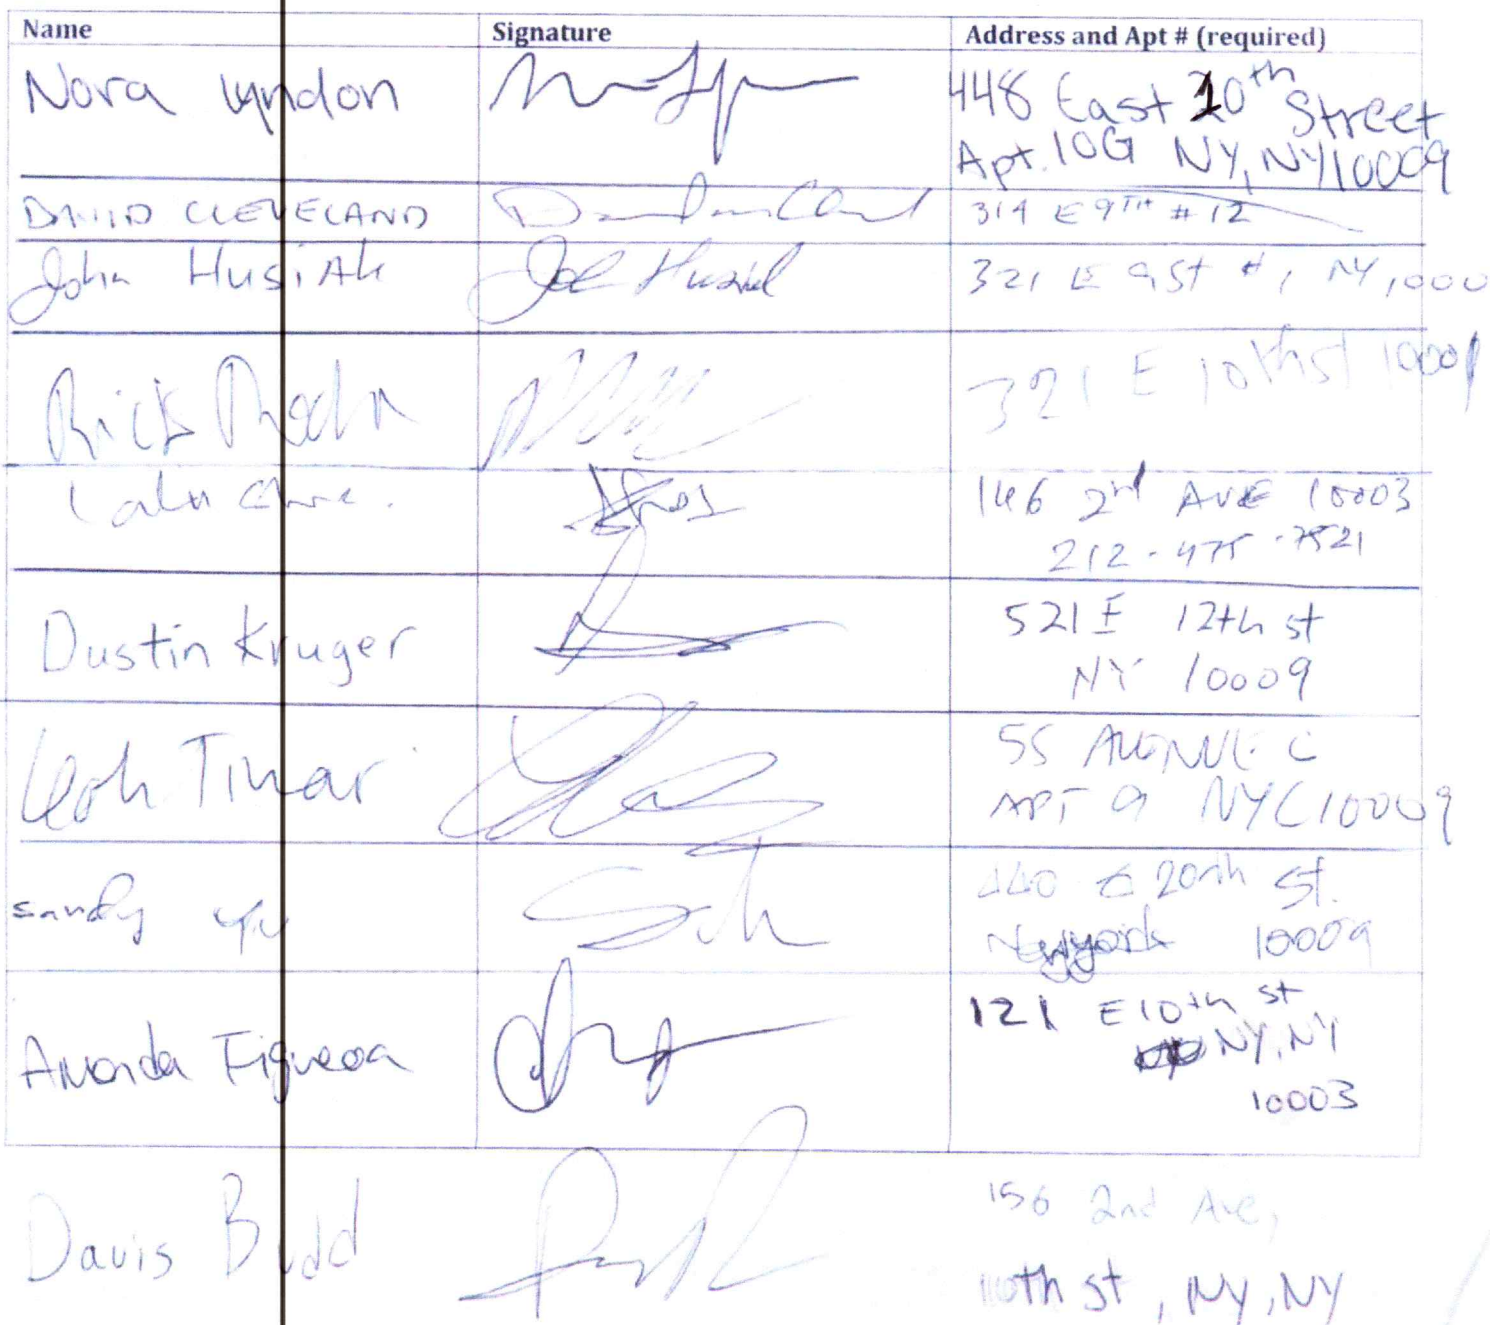 Name Signature Address and Apt # (required)
Nora Lyndon 448 East 20th Street
Apt. 10G NY, NY 10009
DAVID CLEVELAND 319 E 9TH # 12
John HusiAk 321 E 9St # 1 NY, 1000
Rick 321 E 10th st 10009
146 2nd AVE 10003
212-475-7521
Dustin Kruger 521 E 12th st
NY 10009
Leah 55 AVENUE C
APT 9 NYC 10009
sandy yu 440 E 20th St.
New york 10009
Amanda Figueoa 121 E 10th st
NY, NY
10003
Davis Budd 156 2nd Ave,
10th st, NY, NY